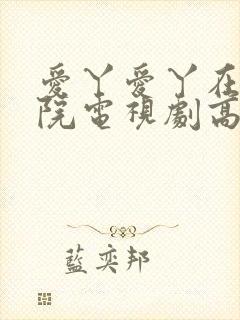 愛丫愛丫在
院電視劇高
藍奕邦